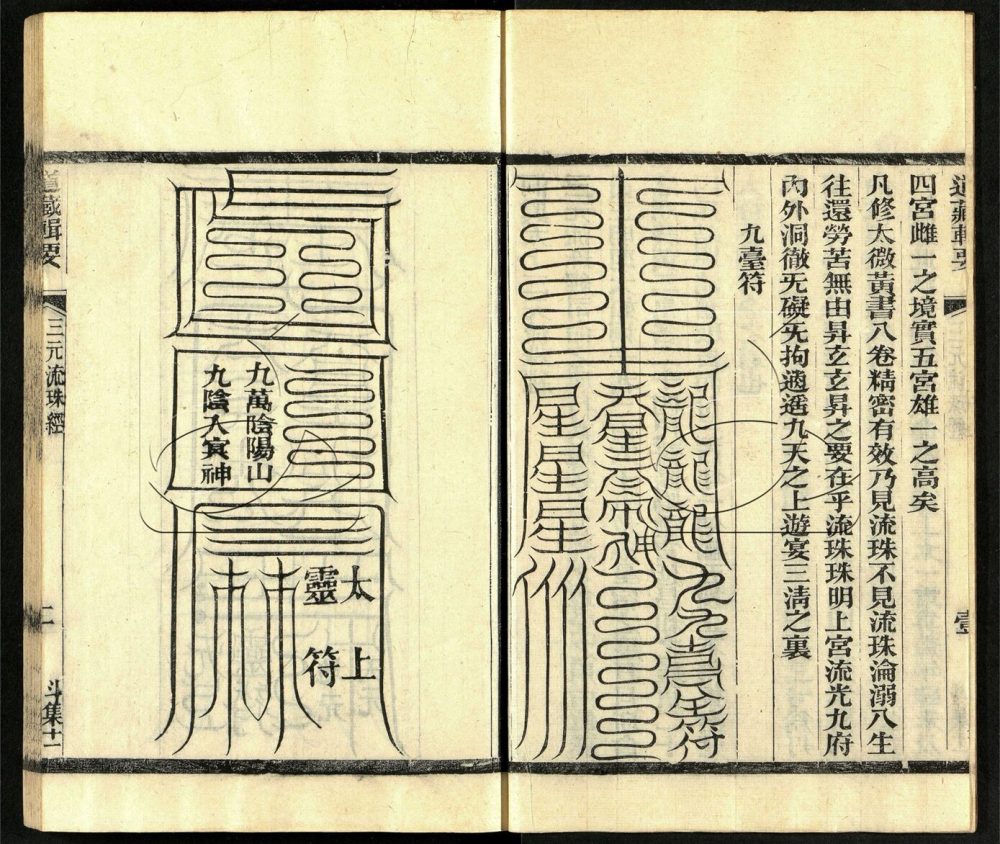 道藏輯要
四宮雌一之境實五宮雄一之高矣
凡修太微黃書八卷精密有效乃見流珠不見流珠淪溺八生
往還勞苦無由昇玄玄昇之要在乎流珠珠明上宮流光九府
內外洞徹旡礙旡拘遁遥九天之上遊宴三淸之裏
九臺符
龍龍龍
星星星
太上
靈符
九萬陰陽山
九陰入㝠神
道藏輯要
三元流珠經
二
斗集十一